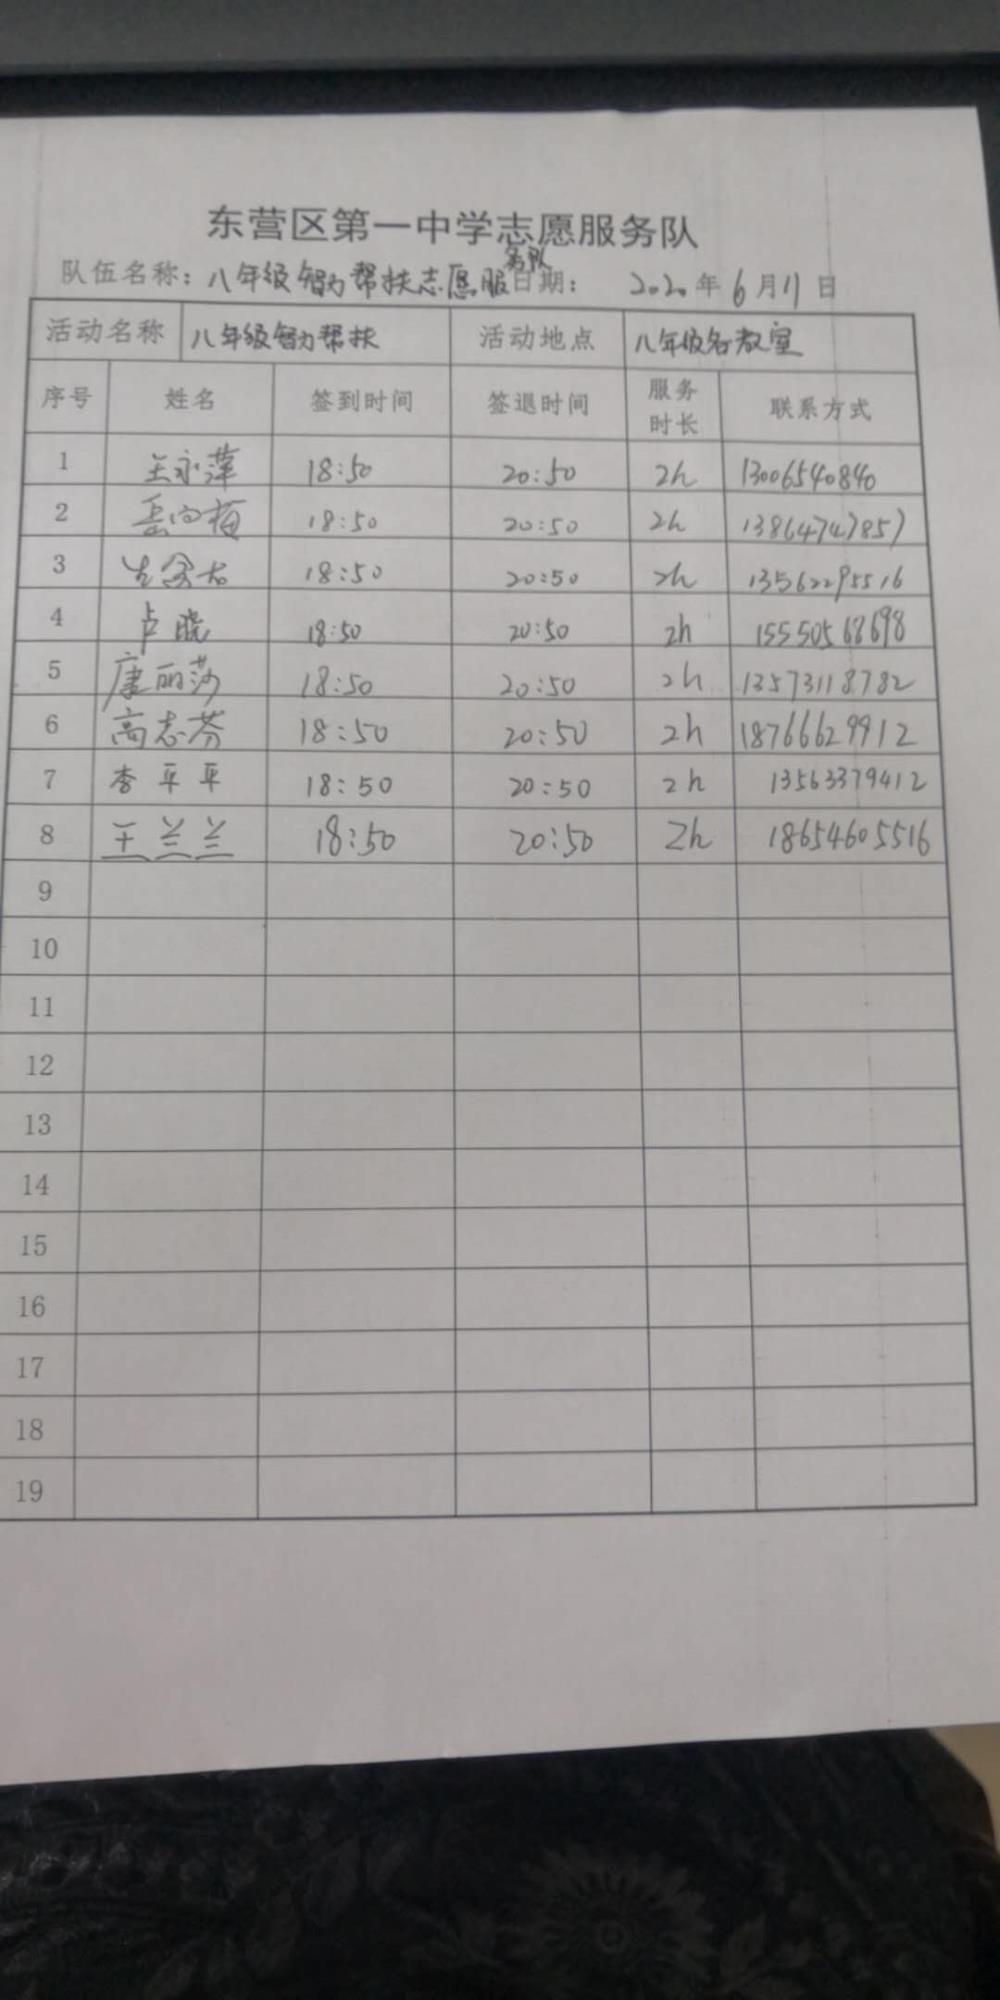 东营区第一中学志愿服务队
队伍名称：八年级智力帮扶志愿服务队 日期： 2020年6月11日
活动名称 八年级智力帮扶 活动地点 八年级各教室
序号 姓名 签到时间 签退时间 服务时长 联系方式
1 王永萍 18:50 20:50 2h 13006540840
2 岳向梅 18:50 20:50 2h 13864747857
3 18:50 20:50 2h 13562295516
4 卢晓 18:50 20:50 2h 15550568698
5 唐丽莎 18:50 20:50 2h 13573118782
6 高志芬 18:50 20:50 2h 18766629912
7 李平平 18:50 20:50 2h 13563379412
8 王兰兰 18:50 20:50 2h 18654605516
9
10
11
12
13
14
15
16
17
18
19